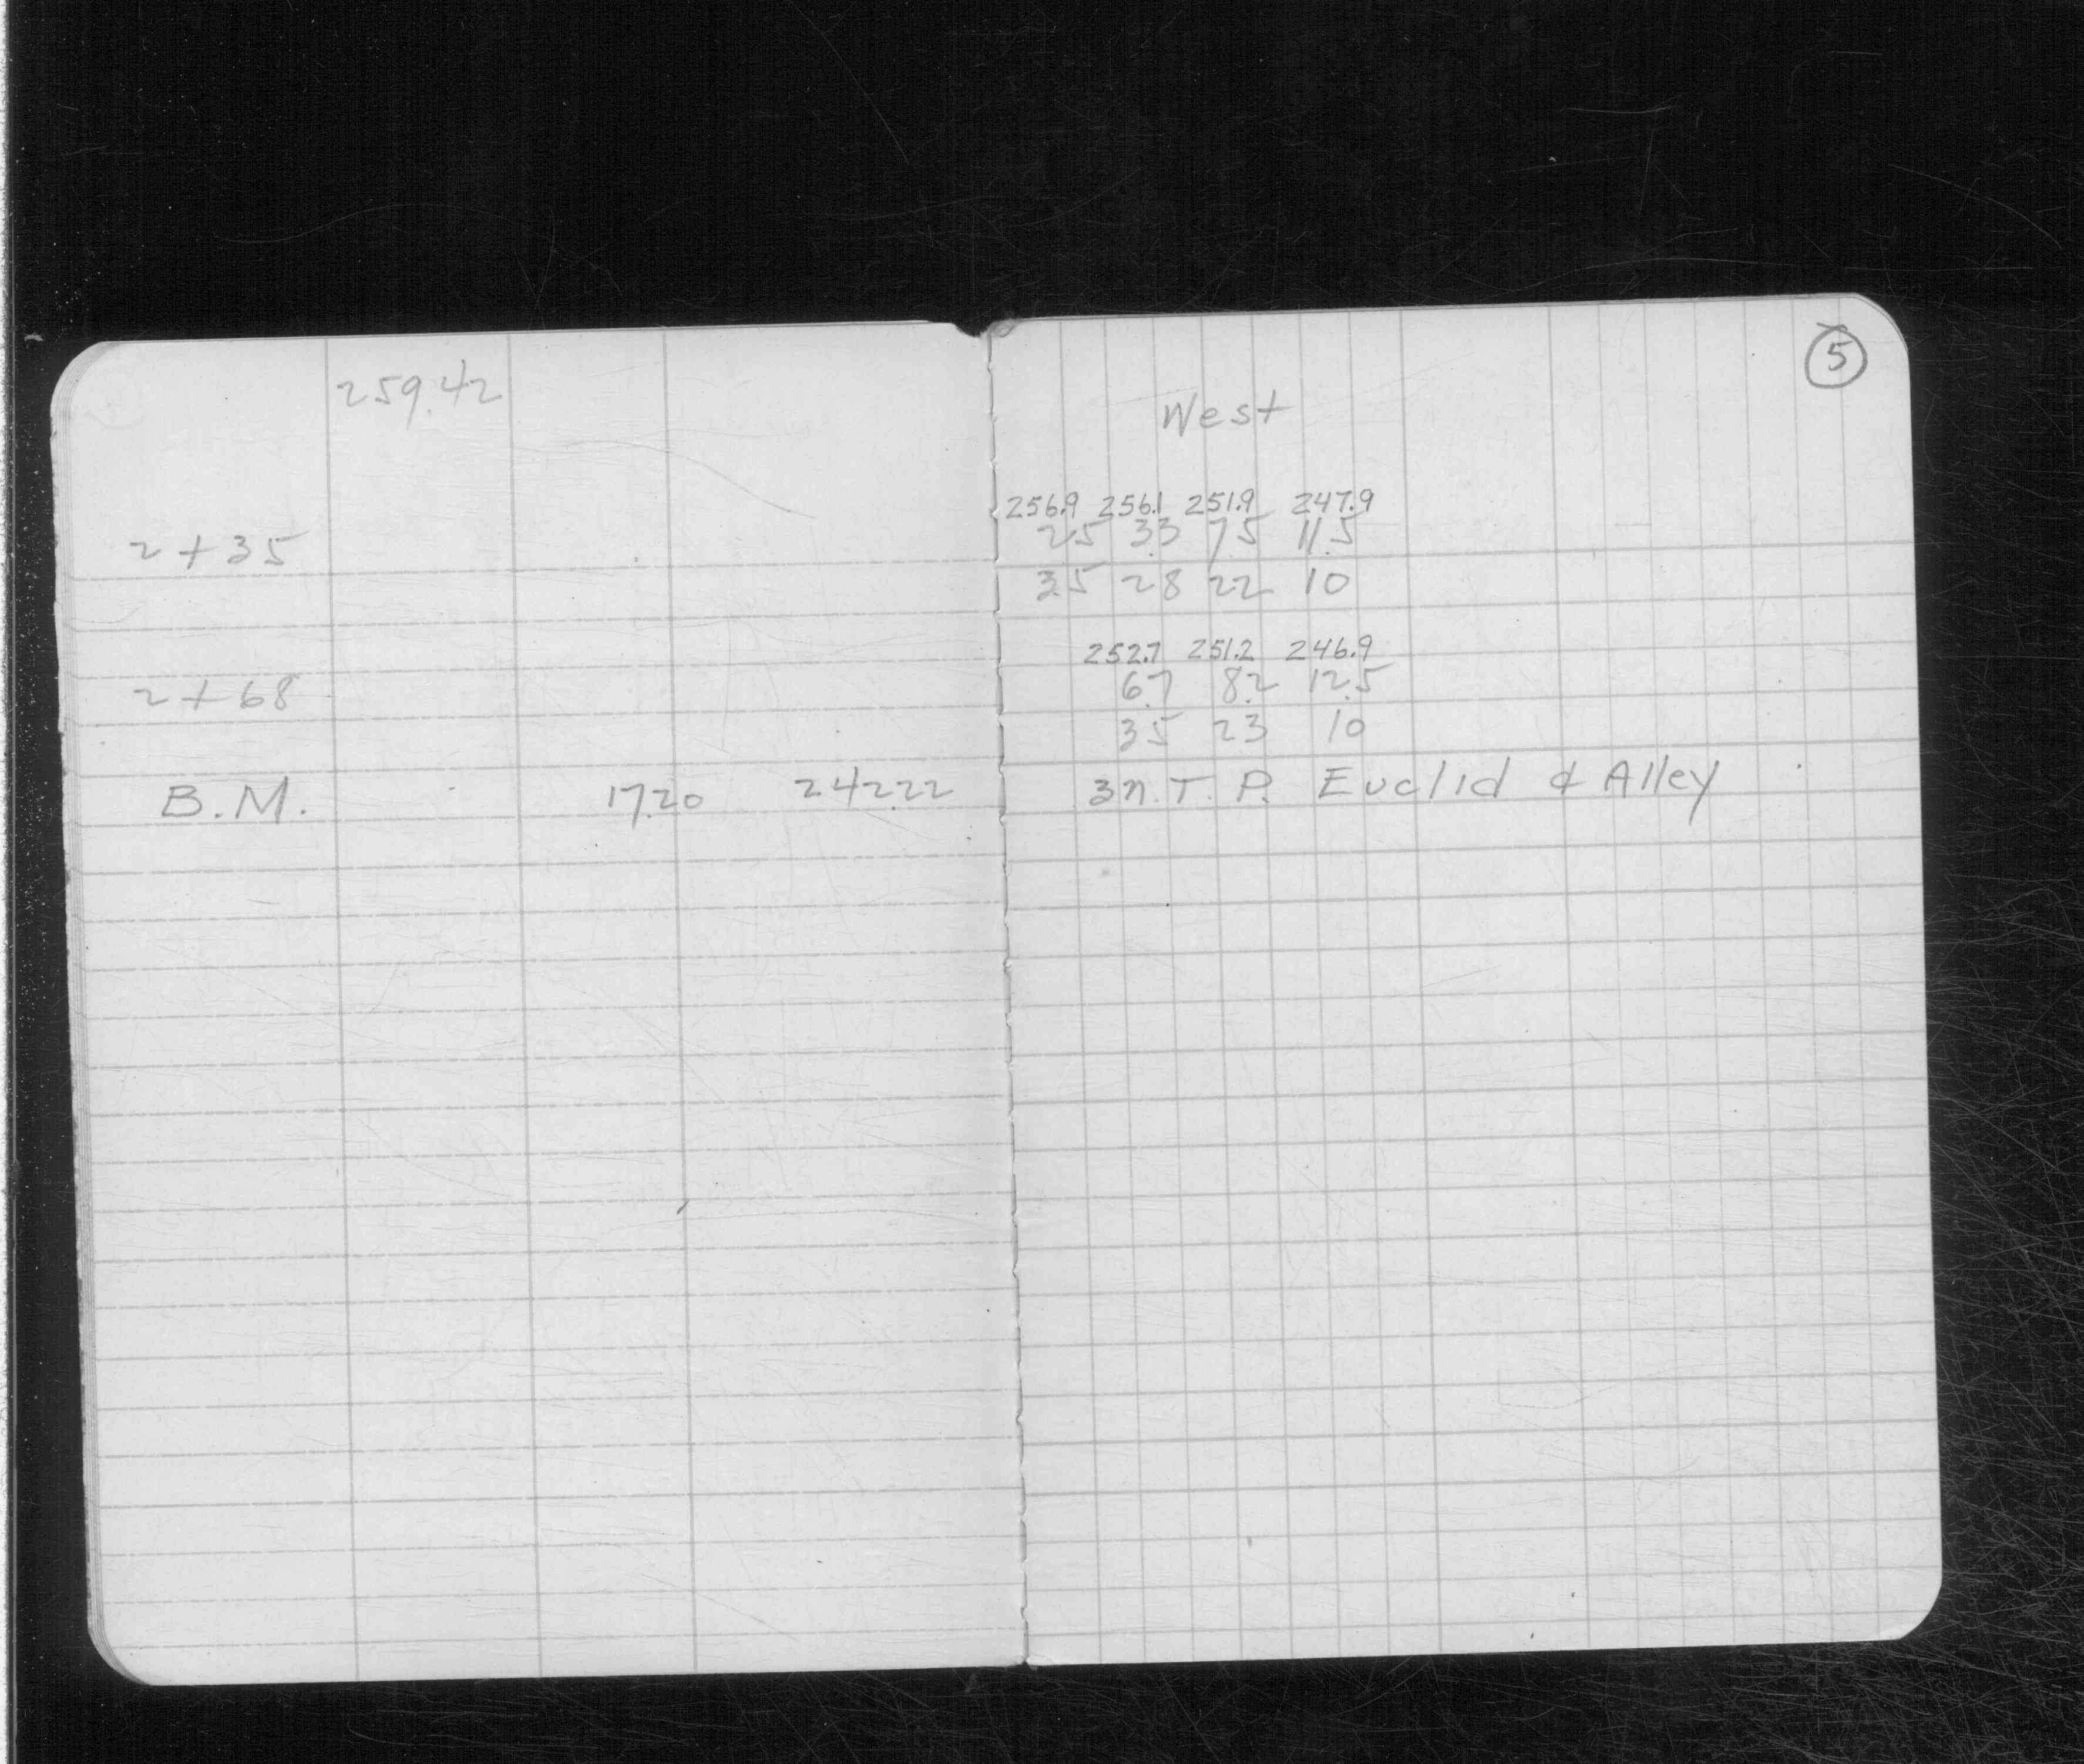 259.42
5
West
256.9 256.1 251.9 247.9
2+35 2.5 3.3 7.5 11.5
35 28 22 10
252.7 251.2 246.9
2+68 6.7 8.2 12.5
35 23 10
B.M. 17.20 242.22 3n. T. P. Euclid & Alley